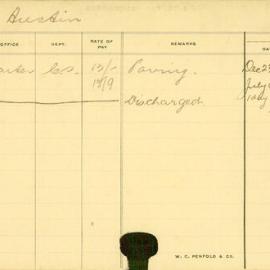 Austin
OFFICE DEPT. RATE OF PAY REMARKS DA
C.S. 13/- Paving. Dec 23
13/9 July
Discharged
W. C. PENFOLD & CO.